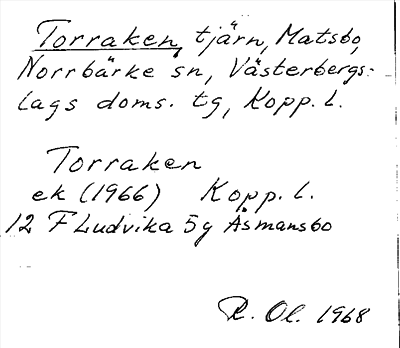 Torraken, tjärn, Matsbo,
Norrbärke sn, Västerbergs-
lags doms. tg, Kopp. l.
Torraken
ek (1966) Kopp. l.
12 F Ludvika 5g Åsmansbo
R. Ol. 1968